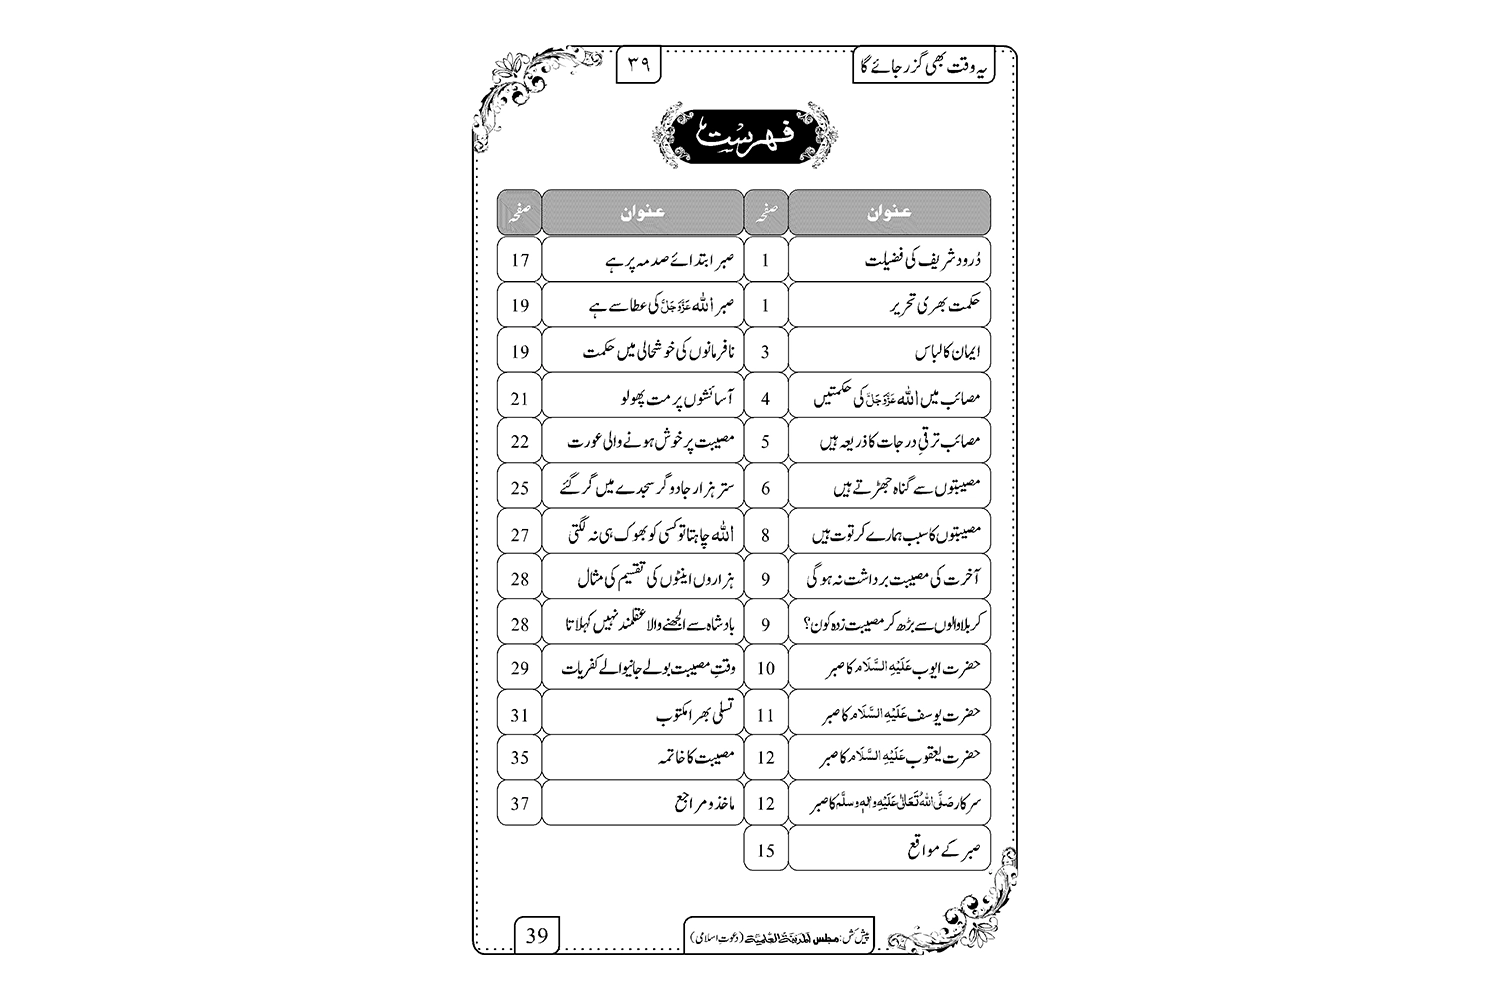 یہ وقت بھی گزر جائے گا ۳۹
فہرست
عنوان صفحہ عنوان صفحہ
دُرود شریف کی فضیلت 1 صبر ابتدائے صدمہ پر ہے 17
حکمت بھری تحریر 1 صبر اللہ عَزَّوَجَلَّ کی عطا سے ہے 19
ایمان کا لباس 3 نافرمانوں کی خوشحالی میں حکمت 19
مصائب میں اللہ عَزَّوَجَلَّ کی حکمتیں 4 آسائشوں پر مت پھولو 21
مصائب ترقیِ درجات کا ذریعہ ہیں 5 مصیبت پر خوش ہونے والی عورت 22
مصیبتوں سے گناہ جھڑتے ہیں 6 ستر ہزار جادوگر سجدے میں گر گئے 25
مصیبتوں کا سبب ہمارے کرتوت ہیں 8 اللہ چاہتا تو کسی کو بھوک ہی نہ لگتی 27
آخرت کی مصیبت برداشت نہ ہوگی 9 ہزاروں اینٹوں کی تقسیم کی مثال 28
کربلا والوں سے بڑھ کر مصیبت زدہ کون؟ 9 بادشاہ سے الجھنے والا عقلمند نہیں کہلاتا 28
حضرت ایوب عَلَیْہِ السَّلَام کا صبر 10 وقتِ مصیبت بولے جانیوالے کفریات 29
حضرت یوسف عَلَیْہِ السَّلَام کا صبر 11 تسلی بھرا مکتوب 31
حضرت یعقوب عَلَیْہِ السَّلَام کا صبر 12 مصیبت کا خاتمہ 35
سرکار صَلَّی اللہُ تَعَالٰی عَلَیْہِ واٰلہٖ وسلَّم کا صبر 12 ماخذ و مراجع 37
صبر کے مواقع 15
پیش کش: مجلس المدینۃ العلمیۃ (دعوتِ اسلامی) 39